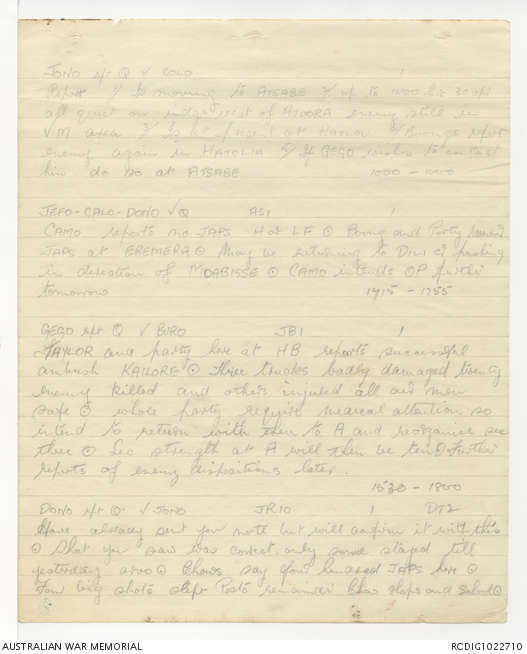 JONO rpt Q V CALO 1
Report 1/ Is moving to ATSABE 2/ up to 1000 hrs 30 Apl
all quiet on ridge west of ATDORA enemy still in
VM area 3/ Is at present at Hatolia 4/ report
enemy again in HATOLIA 5/ If GEGO wishes to contact
him do so at ATSABE 1000 -
JEFO-CALO-DONO V Q AS1 1
CAMO reports no JAPS H at LF ☉ and Party
JAPS at EREMERA ☉ May be returning to or pushing
in direction of MOABISSE ☉ CAMO intends OP further
tomorrow 1715 - 1755
GEGO rpt Q V BURO JB1 1
TAYLOR and party here at HB reports successful
ambush KAILORE ☉ Three trucks badly damaged twenty
enemy killed and others injured all our men
safe ☉ whole party require medical attention so
intend to return with them to A and reorganise see
there ☉ Sec strength at A will then be ten ☉ Further
reports of enemy dispositions later.
1530 - 1800
DONO rpt Q V JONO JR10 1 DT2
Have already sent you note but will confirm it with this
☉ What you saw was correct only some stayed till
yesterday ☉ say four hundred JAPS here ☉
Four big shots slept Posto remainder Chas shops and School ☉
AUSTRALIAN WAR MEMORIAL
RCDIG1022710